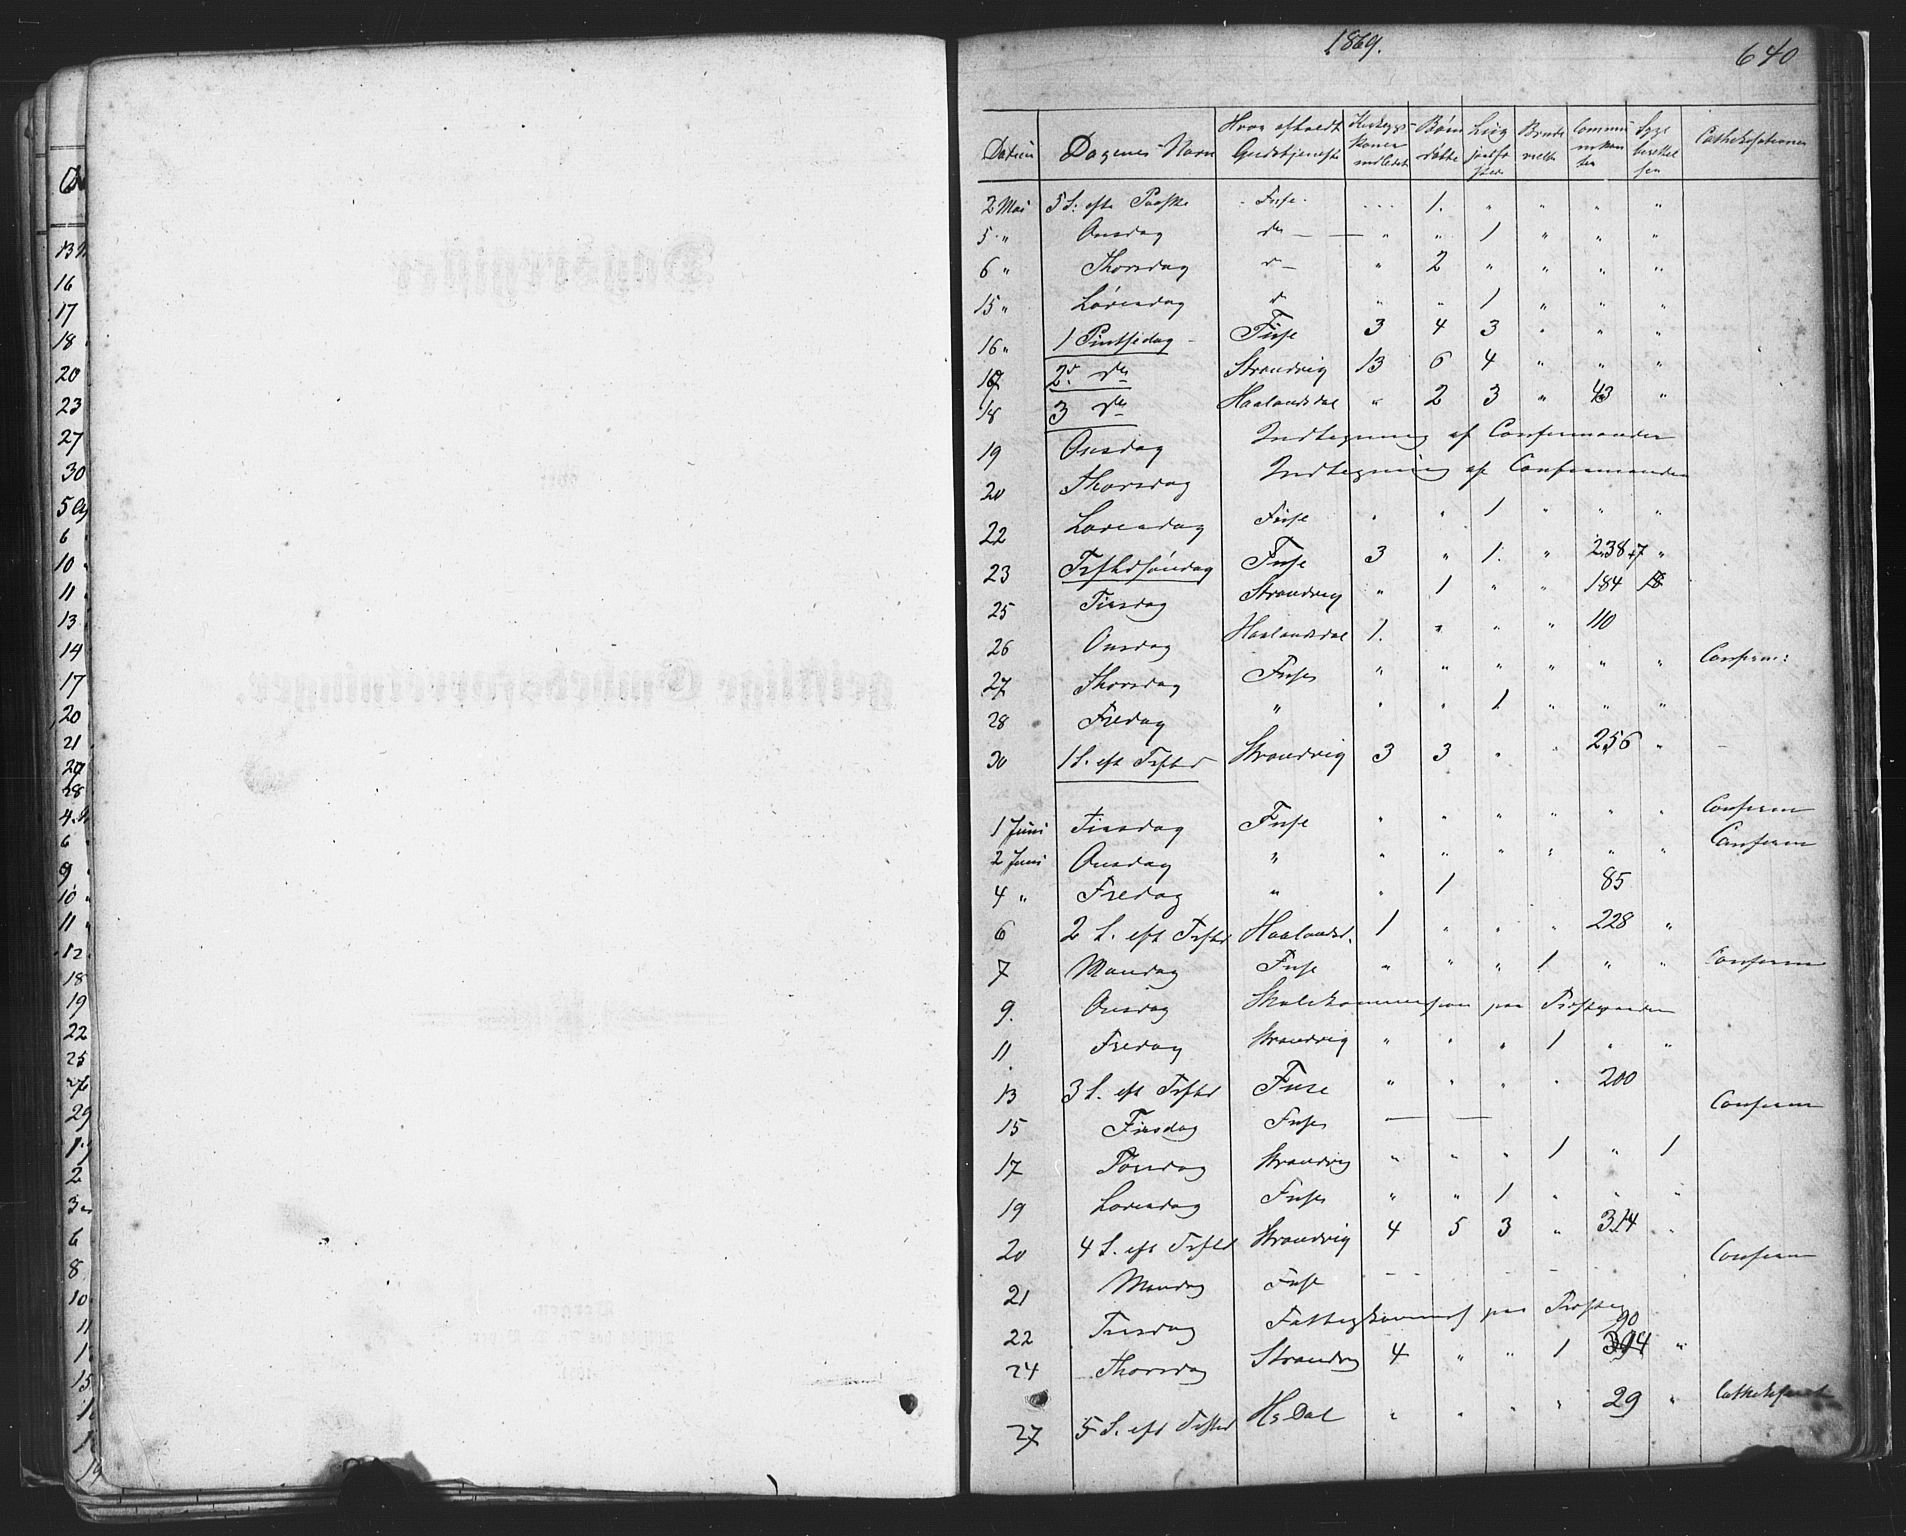 1869.
640
Datum | Dagenes Navn | Hvor afholdt Gudstjeneste | Kirkegangs- koner indledet | Børn døbte | Liig jordfæstede | Brude viede | Communikanter | Syge besøkelsen | Cathekisationer
2 Mai | 5 S: efte Paaske | Fuse | . . . | 1. | " | " | " | "
5 " | Onsdag | do | " | " | 1 | " | " | "
6 " | Thorsdag | d | " | 2 | " | " | " | "
15 " | Løverdag | d | " | " | 1 | " | " | "
16 " | 1 Pintsedag | Fuse | 3 | 4 | 3 | " | " | "
17 | 2d. do | Strandvig | 13 | 6 | 4 | " | " | "
18 | 3 do | Haalandsdal | " | 2 | 3 | " | 43 | "
19 | Onsdag | Indtegning af Confirmander
20 | Thorsdag | Indtegning af Confirmander
22 | Løverdag | Fuse | " | " | 1 | " | " | "
23 | Trftdsøndag | Fuse | 3 | " | 1. | " | 238+7 | "
25 | Tirsdag | Strandvig | " | 1 | " | " | 184
26 | Onsdag | Haalandsdal | 1. | " | " | " | 110
27 | Thorsdag | Fuse | " | " | " | " | " | " | Confirm:
28 | Fredag | " | " | " | 1 | " | " | "
30 | 1 S. eft Trftd | Strandvig | 3 | 3 | " | " | 256 | "
1 Juni | Tirsdag | Fuse | " | " | " | " | " | " | Confirm
2 Juni | Onsdag | " | " | " | " | " | " | " | Confirm
4 " | Fredag | " | " | 1 | 85
6 | 2 S. eft Trftd | Haalandsd. | 1 | " | " | " | 228 | "
7 | Mandag | Fuse | " | " | " | 1 | " | " | Confirm
9. | Onsdag | Skolekommission paa Præstgaarden
11. | Fredag | Strandvig | " | " | " | 1 | " | "
13 | 3 S. eft Trftd | Fuse | " | " | " | " | 200
15 | Tirsdag | Fuse | — | — | Confirm
17 | Torsdag | Strandvig | " | " | " | 1 | " | 1
19 | Løverdag | Fuse | " | " | 1 | " | " | "
20 | 4 S. eft Trftd | Strandvig | 4 | 5 | 3 | " | 314 | "
21 | Mandag | Fuse | Confirm
22 | Tirsdag | Fattigkommis paa Præsteg
24 | Thorsdag | Strandvig | 4 | " | " | 1 | 90 394 | "
27 | 5 S. eft Trftd | Hs Dal | " | " | " | " | 29 | "
13
16
17
18
20
23
27
30
5
6
10
11
13
14
17
20
21
27
28
4.
6
9
10
11
12
18
19
22
25
26
29
2
3
6
8
10
11
15